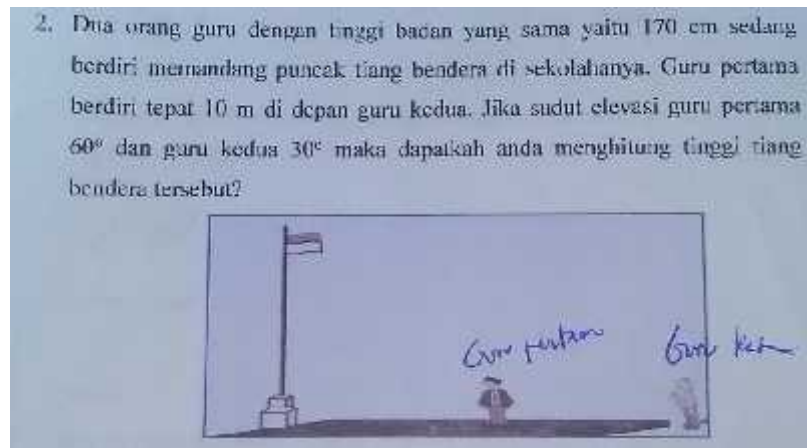 2. Dua orang guru dengan tinggi badan yang sama yaitu 170 cm sedang
berdiri memandang puncak tiang bendera di sekolahanya. Guru pertama
berdiri tepat 10 m di depan guru kedua. Jika sudut elevasi guru pertama
60° dan guru kedua 30° maka dapatkah anda menghitung tinggi tiang
bendera tersebut?
Guru pertama
Guru